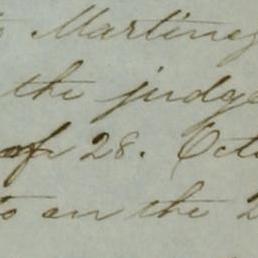 Martinez
the judge
of 28. Octo
to on the 2